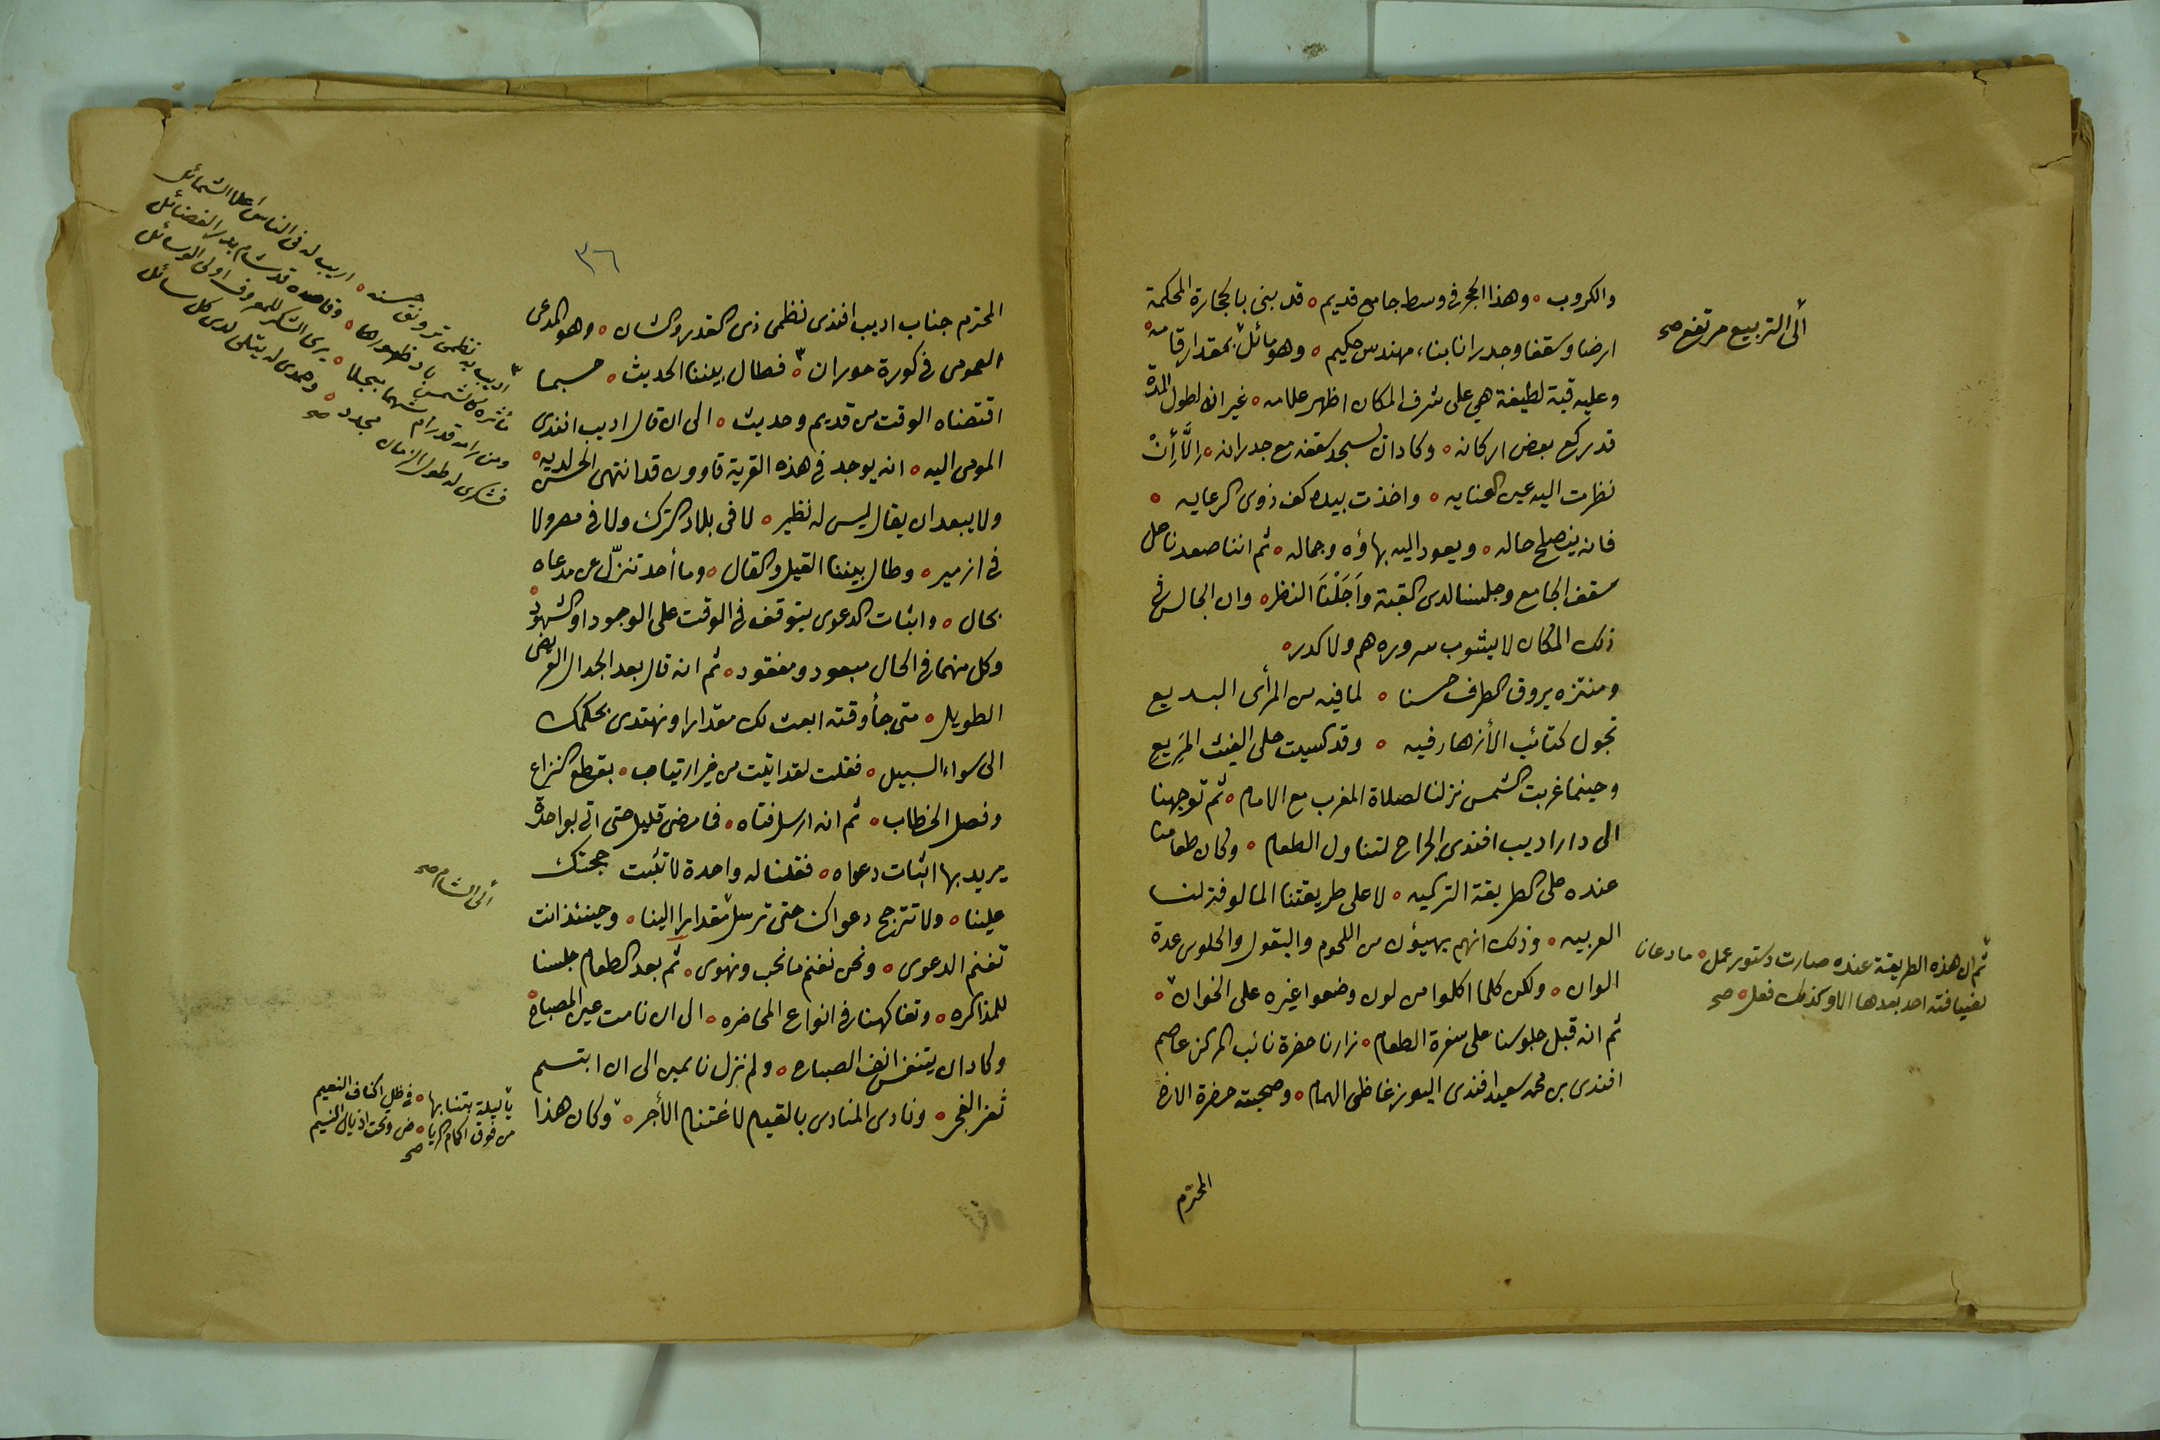 والكروب ٥ وهذا الحجر في وسط جامع قديم ٥ قد بني بالحجارة المحكمة
ارضا وسقفا وجدرانا بناء مهندس حكيم ٥ وهو مائل بمقدار قامه ٥
وعليه قبة لطيفة هي على شرف المكان اظهر علامه ٥ غير انه لطول المدة
قد ركع بعض اركانه ٥ وكاد ان يسجد سقفه مع جدرانه ٥ إلَّا أنْ
نظرت اليه عين العنايه ٥ واخذت بيده كف ذوى الرعايه ٥
فانه ينصلح حاله ٥ ويعود اليه بهاؤه وجماله ٥ ثم اننا صعدنا على
سقف الجامع وجلسنا لدى القبة وَاَجَلْنَا النظر ٥ وان الجالس في
ذلك المكان لا يشوب سروره هم ولا كدر ٥
ومنتزه يروق الطرف حسنا ٥ لما فيه من المرأى البديع
تجول كتائب الأزهار فيه ٥ وقد كسيت حلى الغيث المَريع
وحينما غربت الشمس نزلنا لصلاة المغرب مع الامام ٥ ثم توجهنا
الى دار اديب افندى الجراح لتناول الطعام ٥ وكان طعامنا
عنده على الطريقة التركيه ٥ لا على طريقتنا المألوفة لنا
العربيه ٥ وذلك انهم يهيؤن من اللحوم والبقول والحلوى عدة
الوان ٥ ولكن كلما اكلوا من لون وضعوا غيره على الخوان ٥
ثم انه قبل جلوسنا على سفرة الطعام ٥ زارنا حضرة نائب المركز عاصم
افندى بن محمد سعيد افندى اليوزغاطى الهمام ٥ وصحبته حضرة الاخ
المحترم
ألى التربيع مرتفع صح
ثم ان هذه الطريقة عنده صارت دستور عمل ٥ ما دعانا
لضيافته احد بعدها الا وكذلك فعل ٥ صح
٣٦
المحترم جناب اديب افندى نظمى ذى القدر والشان ٥ وهو المدعى
العمومى في كورة حوران ٥ ٣ فطال بيننا الحديث ٥ حسبما
اقتضاه الوقت من قديم وحديث ٥ الى ان قال اديب افندى
المومى اليه ٥ انه يوجد في هذه القرية قاوون قد انتهى الحسن لديه ٥
ولا يبعد ان يقال ليس له نظير ٥ لا في بلاد الترك ولا في مصر ولا
في ازمير ٥ وطال بيننا القيل والقال ٥ وما أحد تنزّل عن مدعاه
بحال ٥ واثبات الدعوى يتوقف في الوقت على الوجود او الشهود ٥
وكل منهما في الحال مبعود ومفقود ٥ ثم انه قال بعد الجدال العريض
الطويل ٥ متى جأ وقته ابعث لك مقدارا ونهتدى بحكمك
الى سواء السبيل ٥ فقلت لقد اتيت من غير ارتياب ٥ بقطع النزاع
وفصل الخطاب ٥ ثم انه ارسل فتاه ٥ فما مضى قليل حتى اتى بواحدة
يريد بها اثبات دعواه ٥ فقلنا له واحدة لا تثبت حجتك
علينا ٥ ولا تترجح دعواك حتى ترسل مقدارا الينا ٥ وحينئذ انت
تغنم الدعوى ٥ ونحن نغنم ما نحب ونهوى ٥ ثم بعد الطعام جلسنا
للمذاكره ٥ وتفاكهنا في انواع المحاضره ٥ الى ان نامت عين المصباح ٥
وكاد ان يتنفس انف الصباح ٥ ولم نزل نايمين الى ان ابتسم
ثغر الفجر ٥ ونادى المنادى بالقيام لاغتنام الأجر ٥ وكان هذا
٣ اديب به نظمى تروق حسنه ٥ اريب له في الناس اعلا الشمائل
مآثره كالشمس باد ظهورها ٥ وقاصده قد شام بدر الفضائل
ومن رامه قد رام شهما مبجلا ٥ يرى الشكر للمعروف اولى الوسائل
فشكرى له طول الزمان مجدد ٥ وحمدى له يتلى لدى كل سائل
صح
ألى الشام صح
يا ليلة بتنا بها ٥ في ظل اكناف النعيم
من فوق اكمام الريا ٥ ض وتحت اذيال النسيم
صح